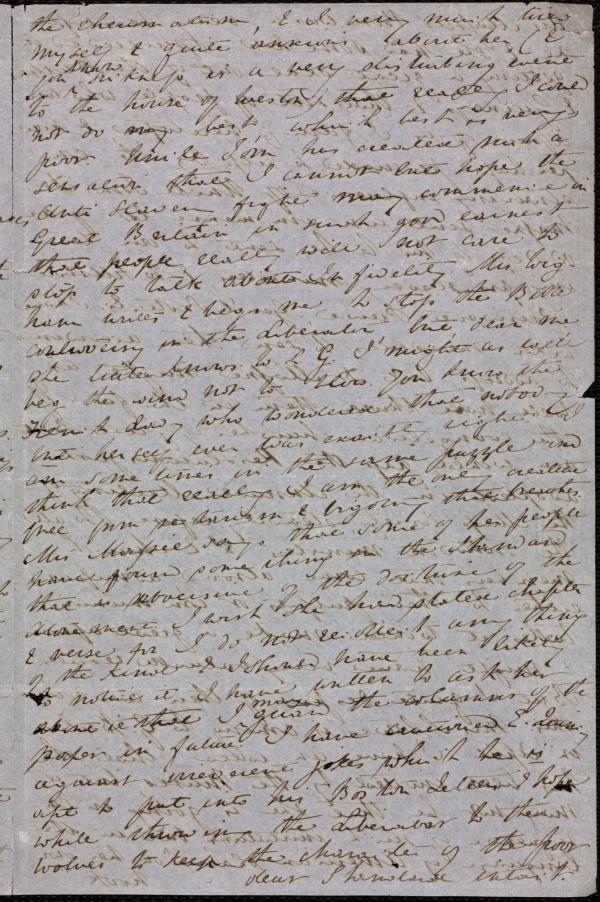 the rheumatism, & I very much tired
myself & quite anxious about her (E
you know sickness is a very disturbing event
to the house of Weston) that really I could
not do my best, which best is very
poor. Uncle Tom has created such a
sensation that I cannot but hope the
Anti Slavery fight may commence in
Great Britain in such good earnest
that people really will not care to
stop to talk about Infidelity. Mrs. Wig-
ham writes & begs me to stop the Bible
controversy in the Liberator but, dear me
she little knows W. L. G. I might as well
beg the wind not to blow. You know the
French lady who wondered that nobody
but herself ever was exactly right. I
am sometimes in the same puzzle and
think that really I am the one creature
free from sectarianism & bigotry that breathes.
Mrs Massie says that some of her people
have found some thing in the Standard
that is subversive of the doctrine of the
Atonement. I wish she had stated chapter
& verse for I do not recollect any thing
of the kind & I should have been likely
to notice it. I have written to ask her
about it that I may guard the columns of the
paper in future. I have cautioned E. Quincy
against irreverent jokes which he is
apt to put into his Boston letters. I hope
while throwing the Liberator to the
wolves to keep the character of the poor
dear Standard intact